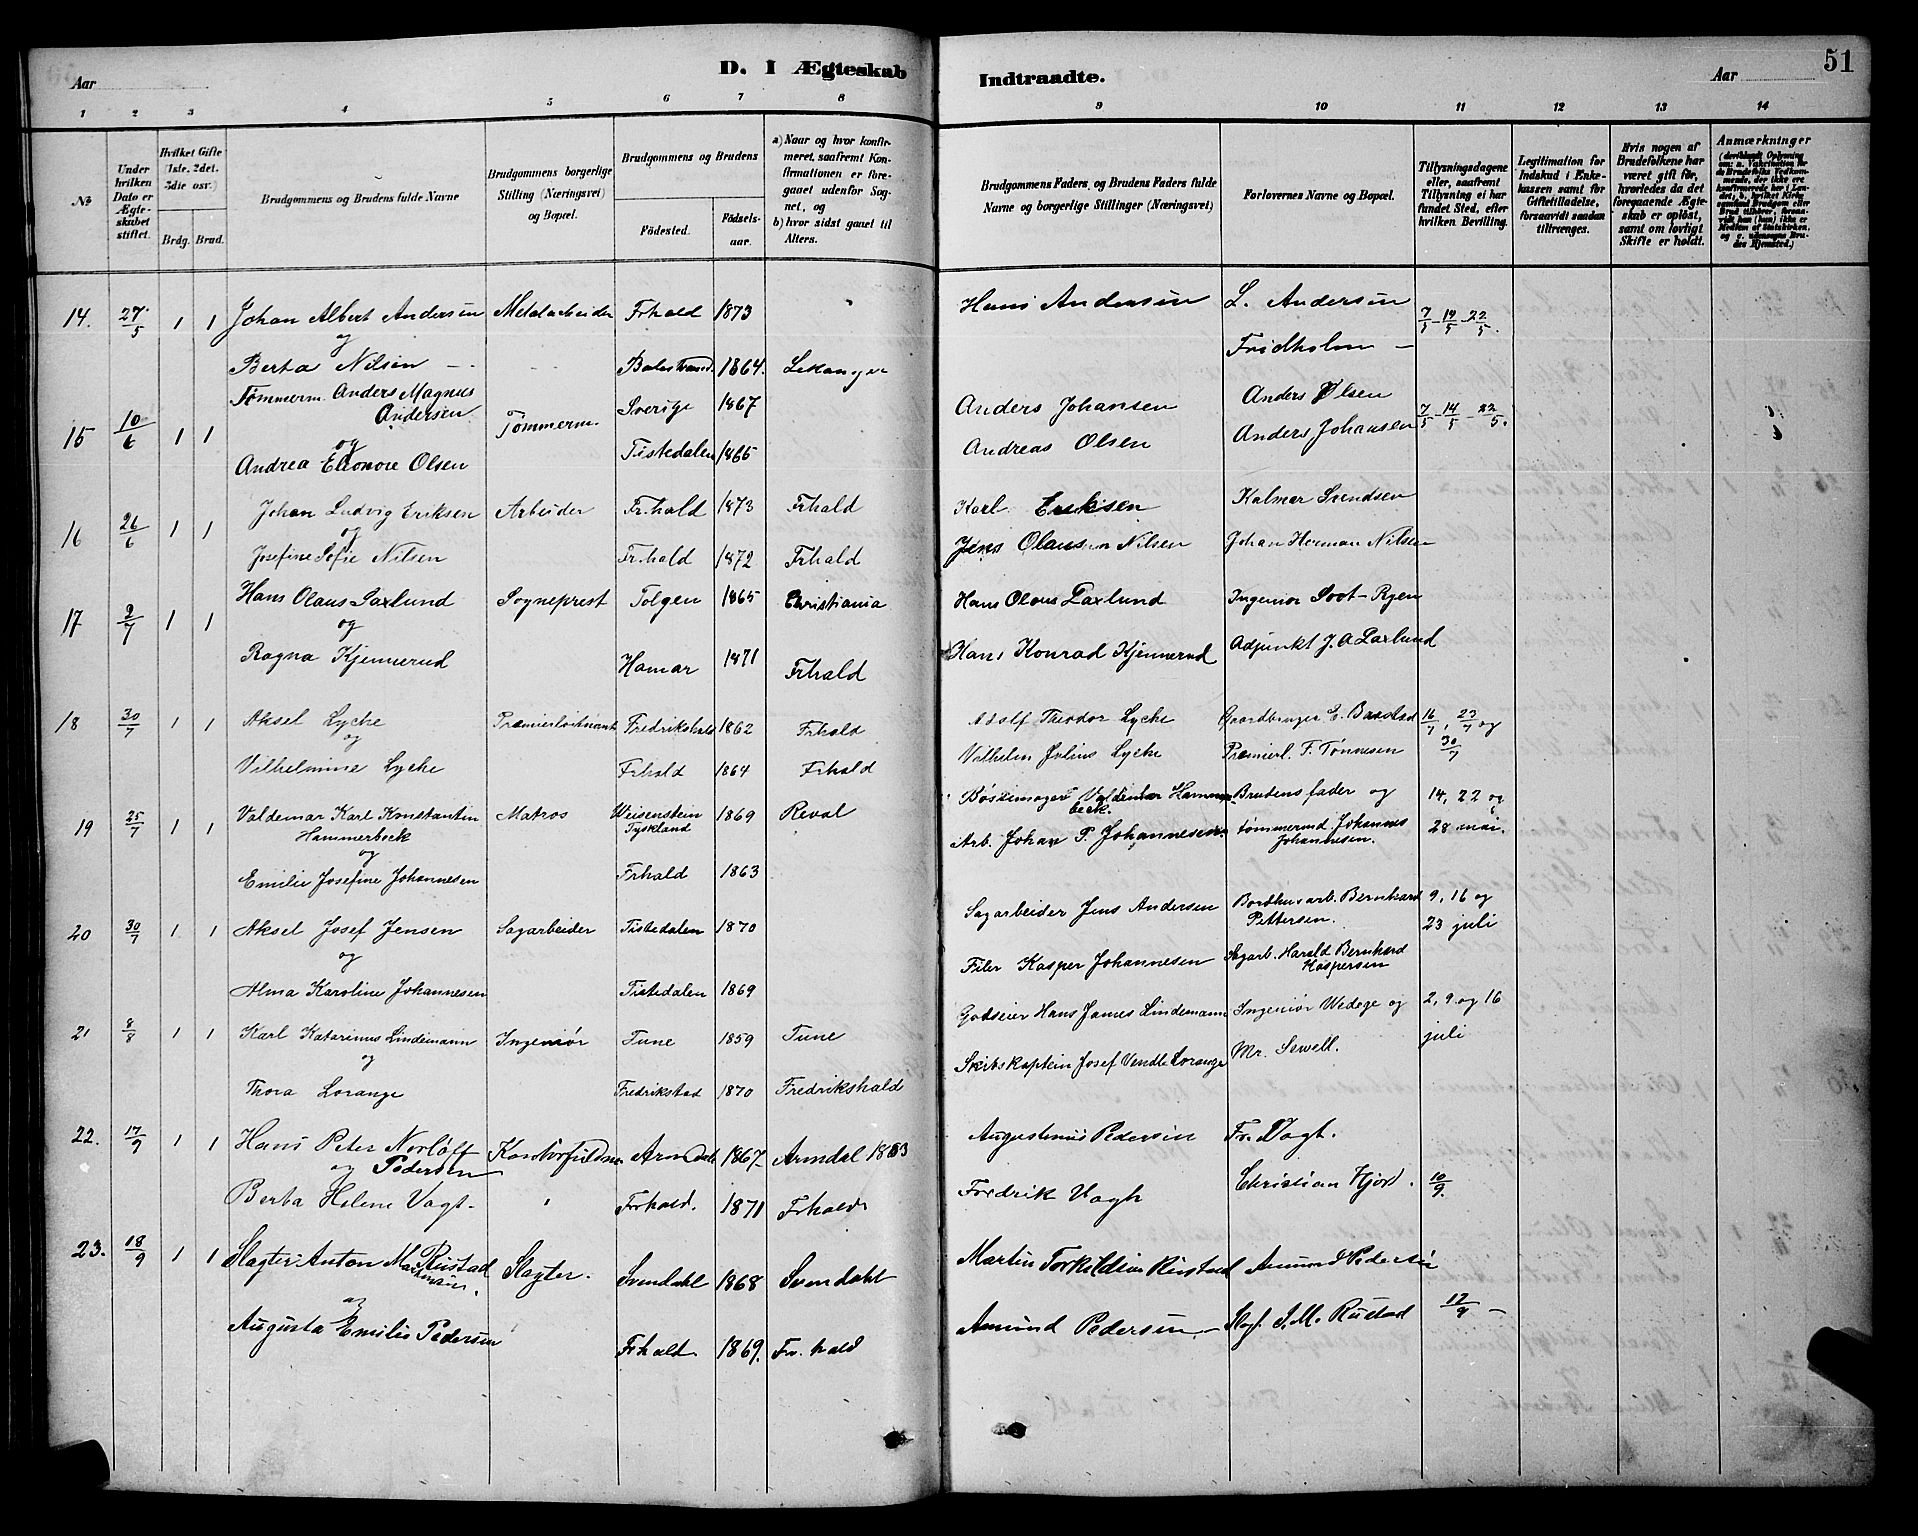 Aar
D. I Ægteskab
Indtraadte.
Aar
51
1 2 3 4 5 6 7 8 9 10 11 12 13 14
№
Under hvilken Dato er Ægteskabet stiftet.
Hvilket Gifte (1ste. 2det. 3die osv.)
Brdg. Brud.
Brudgommens og Brudens fulde Navne
Brudgommens borgerlige Stilling (Næringsvei) og Bopæl.
Brudgommens og Brudens
Födested.
Födsels-aar.
a) Naar og hvor konfirmeret, saafremt Konfirmationen er foregaaet udenfor Sognet, og
b) hvor sidst gaaet til Alters.
Brudgommens Faders, og Brudens Faders fulde Navne og borgerlige Stillinger (Næringsvei)
Forlovernes Navne og Bopæl.
Tillysningsdagene eller, saafremt Tillysning ei har fundet Sted, efter hvilken Bevilling.
Legitimation for Indskud i Enkekassen samt for Giftetilladelse, forsaavidt saadan tiltrænges.
Hvis nogen af Brudefolkene har været gift før, hvorledes da det foregaaende Ægteskab er oplöst, samt om lovligt Skifte er holdt.
Anmærkninger
14. 27/5 1 1 Johan Albert Andersen Metalarbeider Frhald 1873 Hans Andersen L. Andersen 7/5 - 14/5 - 22/5.
og
Fridholm
Berta Nilsen Balestrand. 1864. Lekanger
15 10/6 1 1 Tømmerm. Anders Magnus Andersen Tømmerm. Sverige 1867 Anders Johansen Anders Olsen 7/5 - 14/5 - 22/5.
og
Andrea Eleonore Olsen Tistedalen 1865 Andreas Olsen Anders Johansen
16 26/6 1 1 Johan Ludvig Eriksen Arbeider Fr.hald 1873 Frhald Karl Eriksen Kalmar Svendsen
og
Josefine Sofie Nilsen Fr.hald 1872 Frhald Jens Olausen Nilsen Johan Herman Nilsen
17 2/7 1 1 Hans Olaus Saxlund Sogneprest Tolgen 1865 Christiania Hans Olaus Saxlund Ingeniør Soot-Ryen
og
Ragna Kjennerud Hamar 1871 Frhald Hans Konrad Kjennerud Adjunkt J. A Saxlund
18 30/7 1 1 Aksel Lycke Premierløitnant Fredrikshald 1862 Frhald Adolf Theodor Lycke Gaardbruger E. Baastad 16/7, 23/7 og
og
Vilhelmine Lycke Frhald 1864 Frhald Vilhelm Julius Lycke Premierl. F. Tønnesen 30/7
19 25/7 1 1 Valdemar Karl Konstantin Hammerbeck Matros Weisenstein Tyskland 1869 Reval Bøssemager Valdemar Hammerbeck. Brudens fader og 14, 22 og
og
Emilie Josefine Johannesen Frhald 1863 Arb. Johan P. Johannesen tømmermd Johannes Johannesen. 28 mai.
20 30/7 1 1 Aksel Josef Jensen Sagarbeider Tistedalen 1870 Sagarbeider Jens Andersen Borthusarb. Bernhard Pettersen. 9, 16 og 23 juli
og
Alma Karoline Johannesen Tistedalen 1869 Filer Kasper Johannesen Sagarb. Harald Bernhard Kaspersen
21 8/8 1 1 Karl Katarinus Lindemann Ingeniør Tune 1859 Tune Godseier Hans James Lindemann Ingeniør Wedege og 2, 9 og 16 juli
og
Thora Lorange Fredrikstad 1870 Fredrikshald Skibskaptein Josef Vendle Lorange Mr. Sewell.
22. 17/9 1 1 Hans Peter Norløff Pedersen Arendal 1867 Arendal Augustinus Pedersen Fr. Vogt.
og
Berta Helene Vogt. Frhald. 1871 Frhald Fredrik Vogh Christian Hjord. 10/9.
23. 18/9 1 1 Slagter Anton Rustad Slagter. Svendahl 1868 Svendahl Martin Torkildsen Rustad Amund Pedersen
og
Augusta Emilie Pedersen Frhald. 1869. Fr. hald Amund Pedersen Slagt. S. M. Rustad 17/9